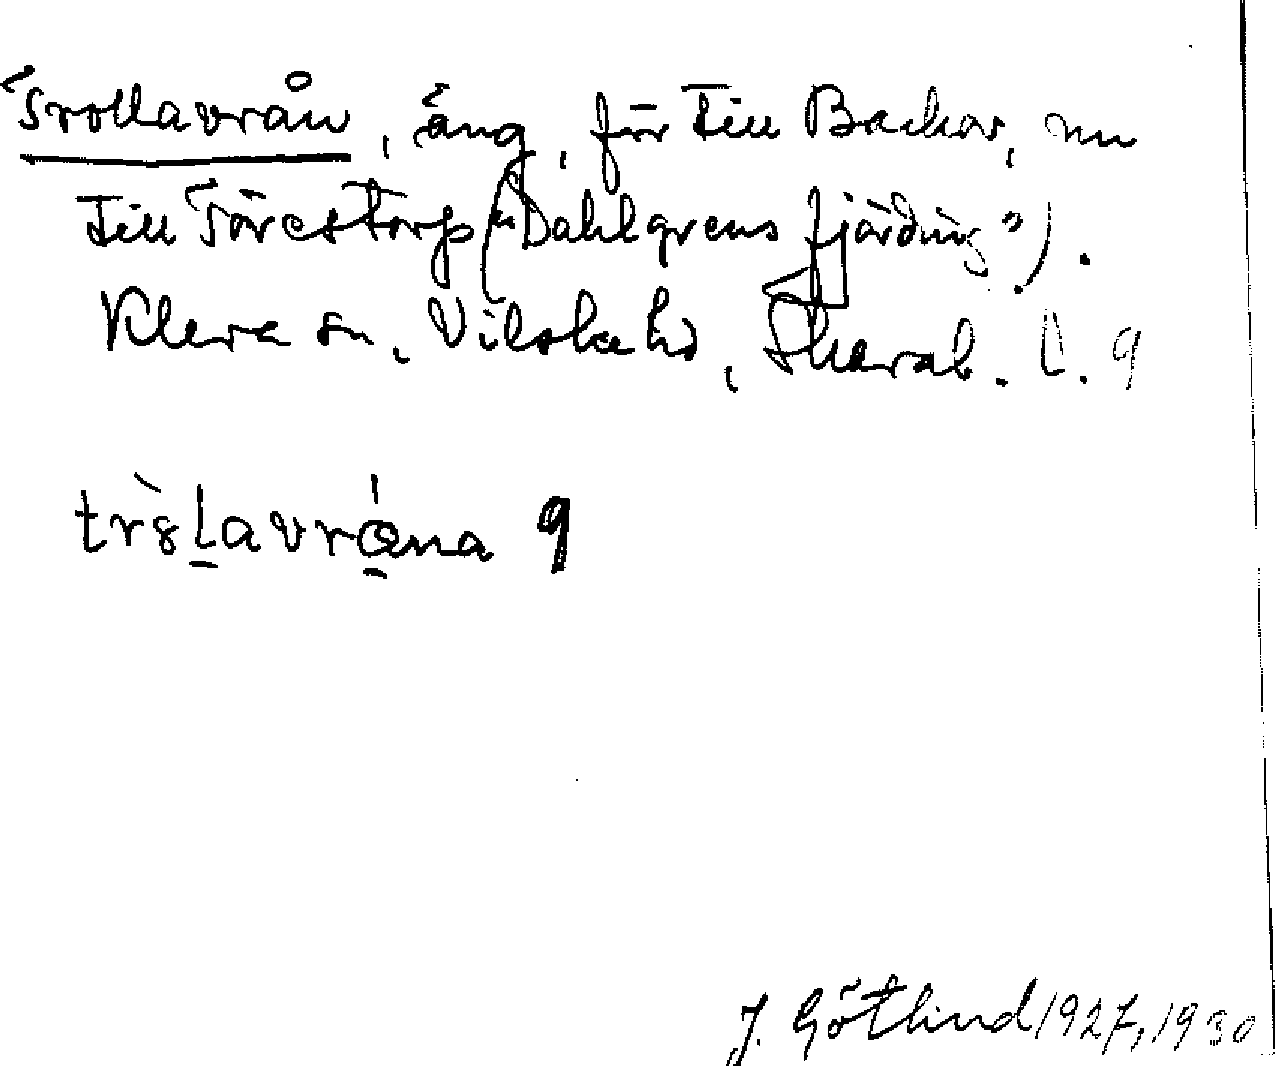 Trollavrån, äng, förr till Backor, nu
till Torestorp ("Dahlgrens fjärding").
Kleva sn, Vilske hd, Skarab. l. 9
trɷ̀lavrǻna 9
J. Götlind 1927, 1930